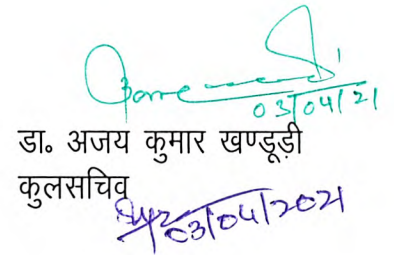 03/04/21
डा. अजय कुमार खण्डूड़ी
कुलसचिव
03/04/2021